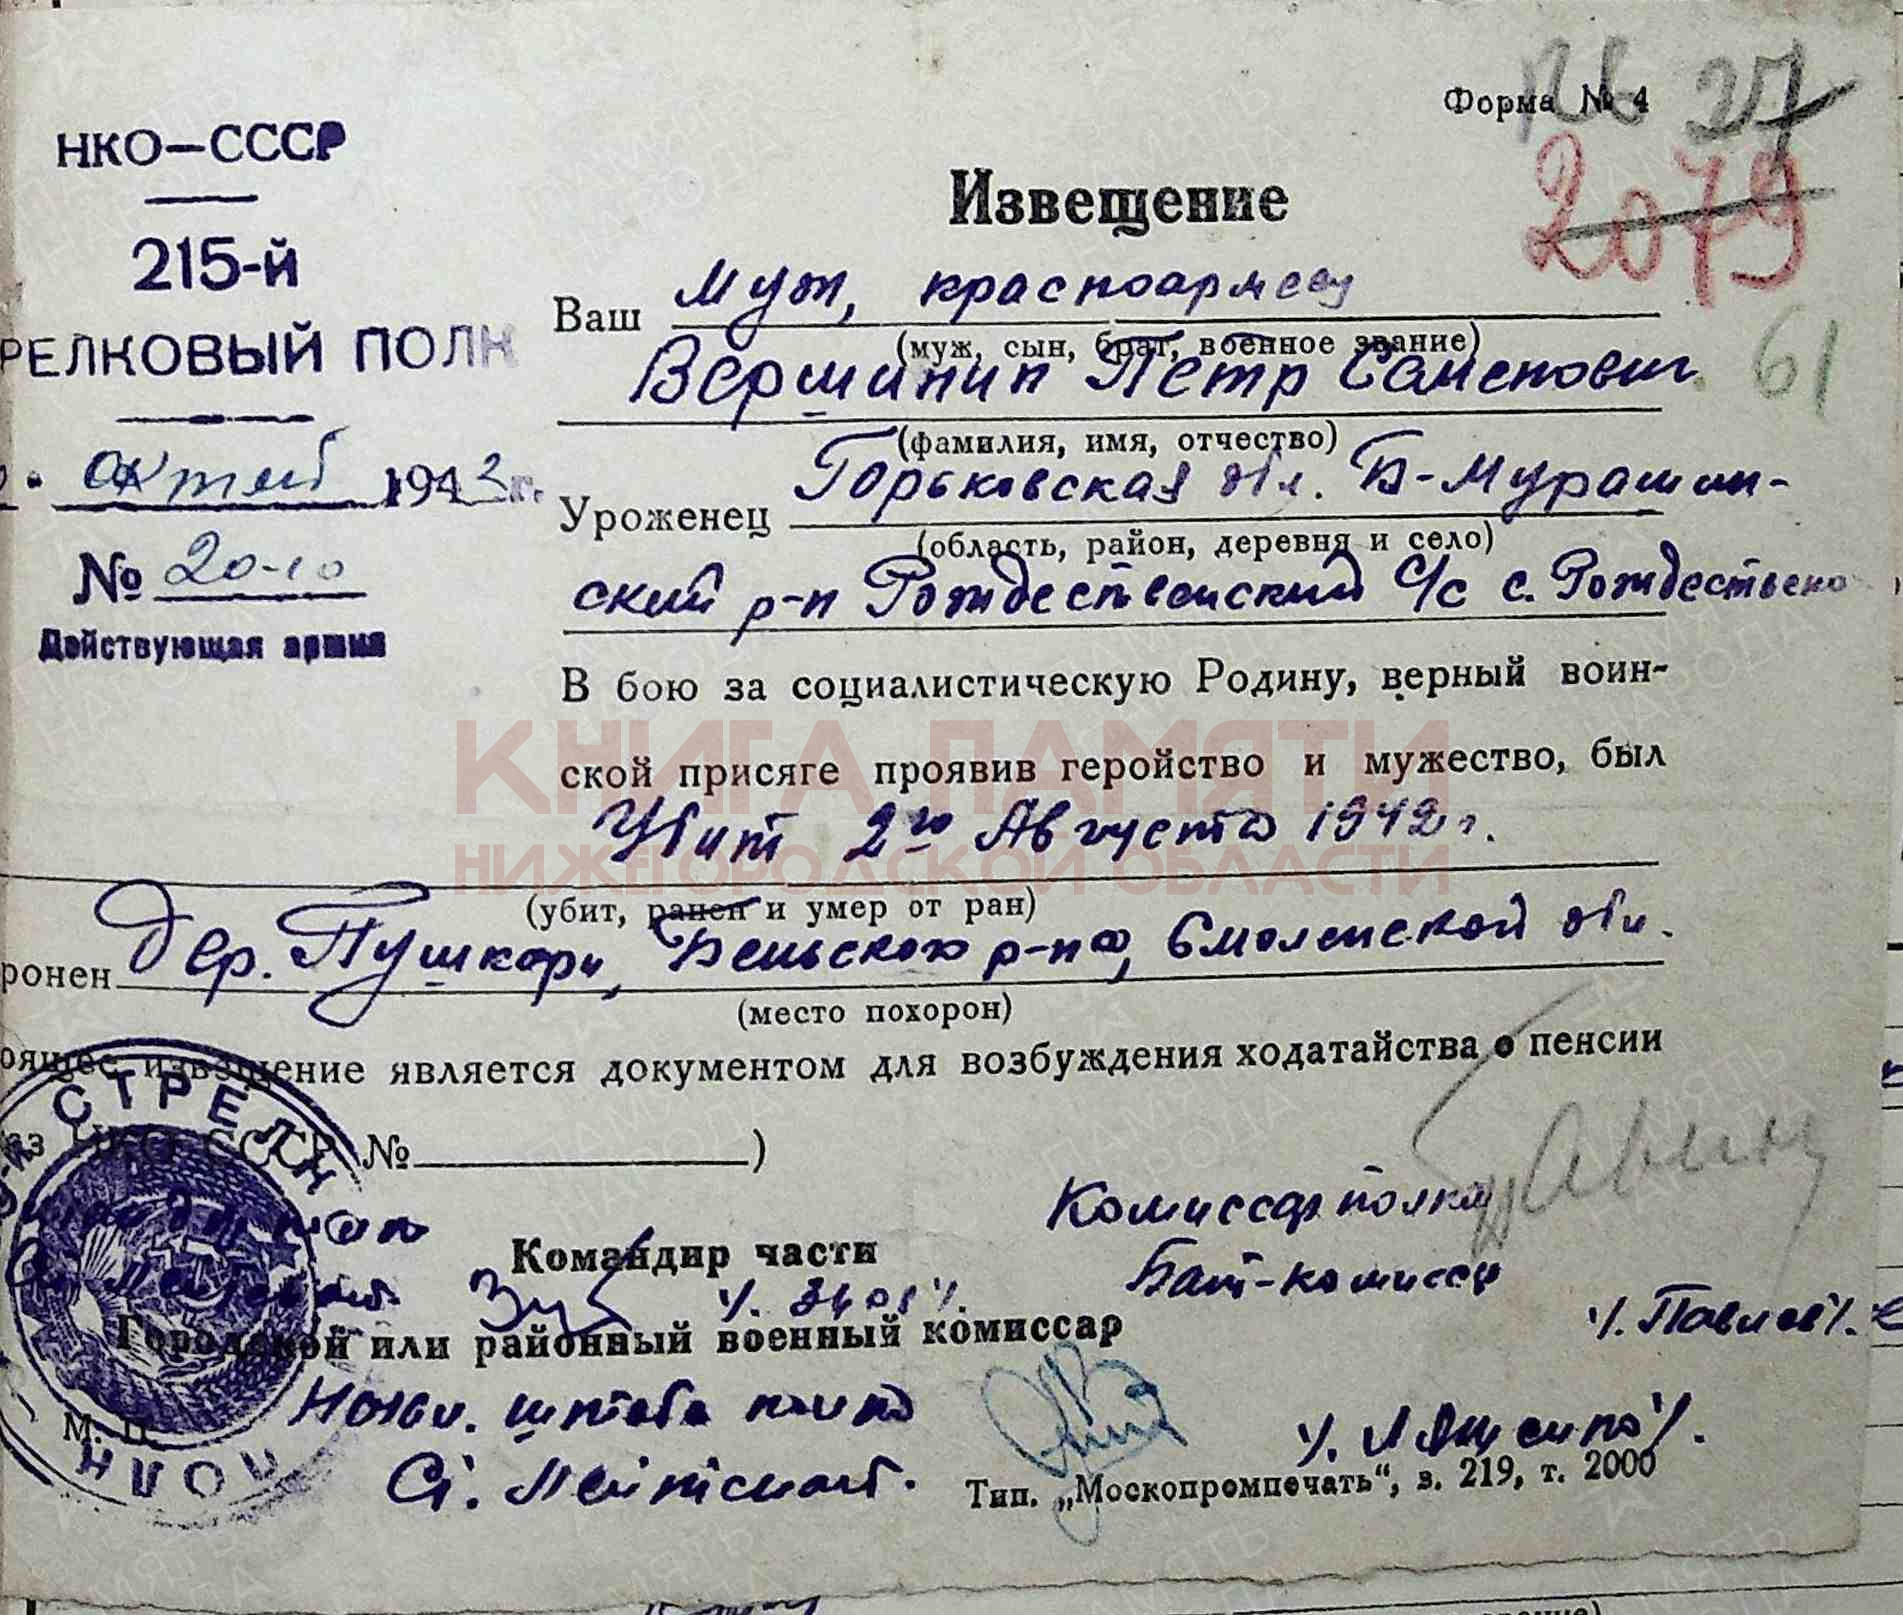 Форма № 4
27
2079
НКО—СССР
215-й
РЕЛКОВЫЙ ПОЛК
Извещение
Ваш муж, красноармеец
(муж, сын, брат, военное звание)
Вершинин Петр Семенович
61
(фамилия, имя, отчество)
октяб 1943 г.
Уроженец Горьковская обл. Б-Мурашкин-
(область, район, деревня и село)
№ 20-10
ский р-н Рождественский С/с с. Рождествено
Действующая армия
В бою за социалистическую Родину, верный воин-
ской присяге проявив геройство и мужество, был
КНИГА ПАМЯТИ
Убит 2го Августа 1942 г.
НИЖЕГОРОДСКОЙ ОБЛАСТИ
(убит, ранен и умер от ран)
ронен дер. Пушкари, Бельского р-на, Смоленской обл.
(место похорон)
оящее извещение является документом для возбуждения ходатайства о пенсии
аз НКО СССР № )
СТРЕЛК
Комиссар полка
Командир части
Бат-комиссар
Городской или районный военный комиссар
Начал. штаба полка
М. П.
Ст. лейтенант.
Тип. „Москопромпечать“, з. 219, т. 2000